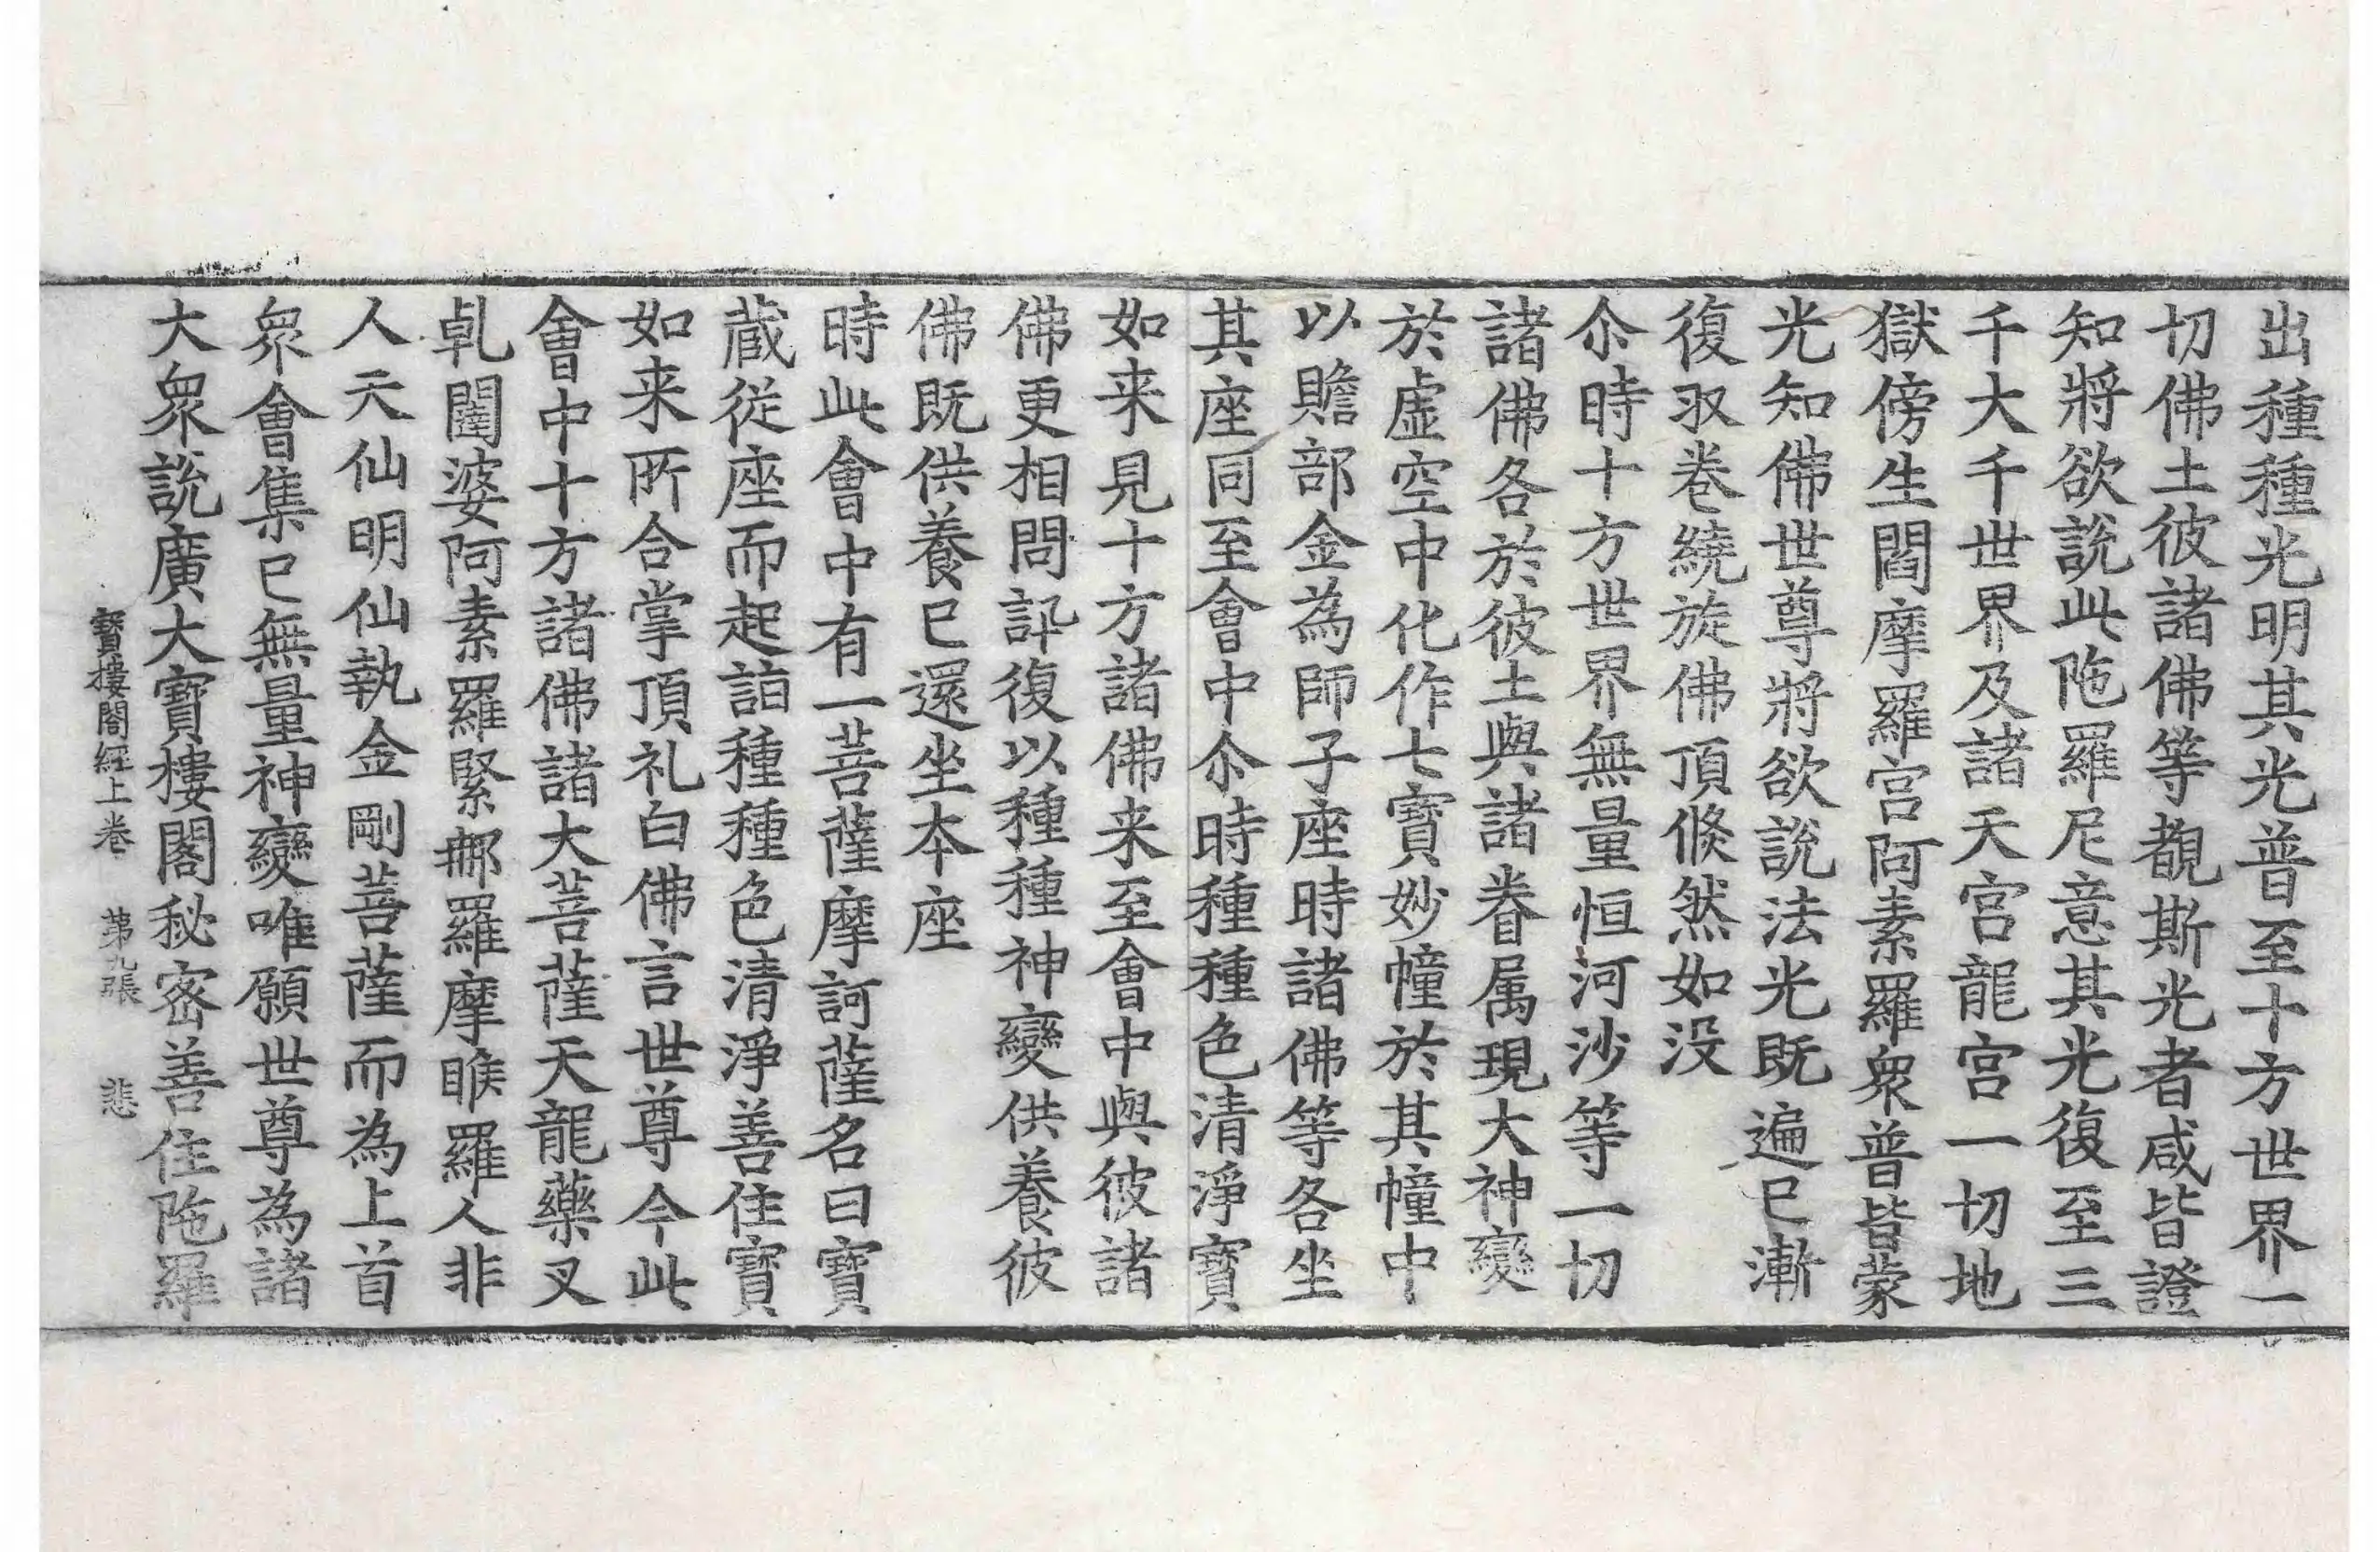 出種種光明其光普至十方世界一
切佛土彼諸佛等覩斯光者咸皆證
知將欲說此陁羅尼意其光復至三
千大千世界及諸天宮龍宮一切地
獄傍生閻摩羅宮阿素羅衆普皆蒙
光知佛世尊將欲說法光既遍已漸
復収卷繞旋佛頂倏然如没
尒時十方世界無量恒河沙等一切
諸佛各於彼土與諸眷属現大神變
於虛空中化作七寶妙幢於其幢中
以贍部金為師子座時諸佛等各坐
其座同至會中尒時種種色清淨寶
如来見十方諸佛来至會中與彼諸
佛更相問訊復以種種神變供養彼
佛既供養已還坐本座
時此會中有一菩薩摩訶薩名曰寶
蔵從座而起詣種種色清淨善住寶
如来所合掌頂礼白佛言世尊今此
會中十方諸佛諸大菩薩天龍藥叉
乹闥婆阿素羅緊那羅摩睺羅人非
人天仙明仙執金剛菩薩而為上首
衆會集已無量神變唯願世尊為諸
大衆說廣大寶樓閣秘密善住陁羅
寶樓閣經上卷 第九張 悲